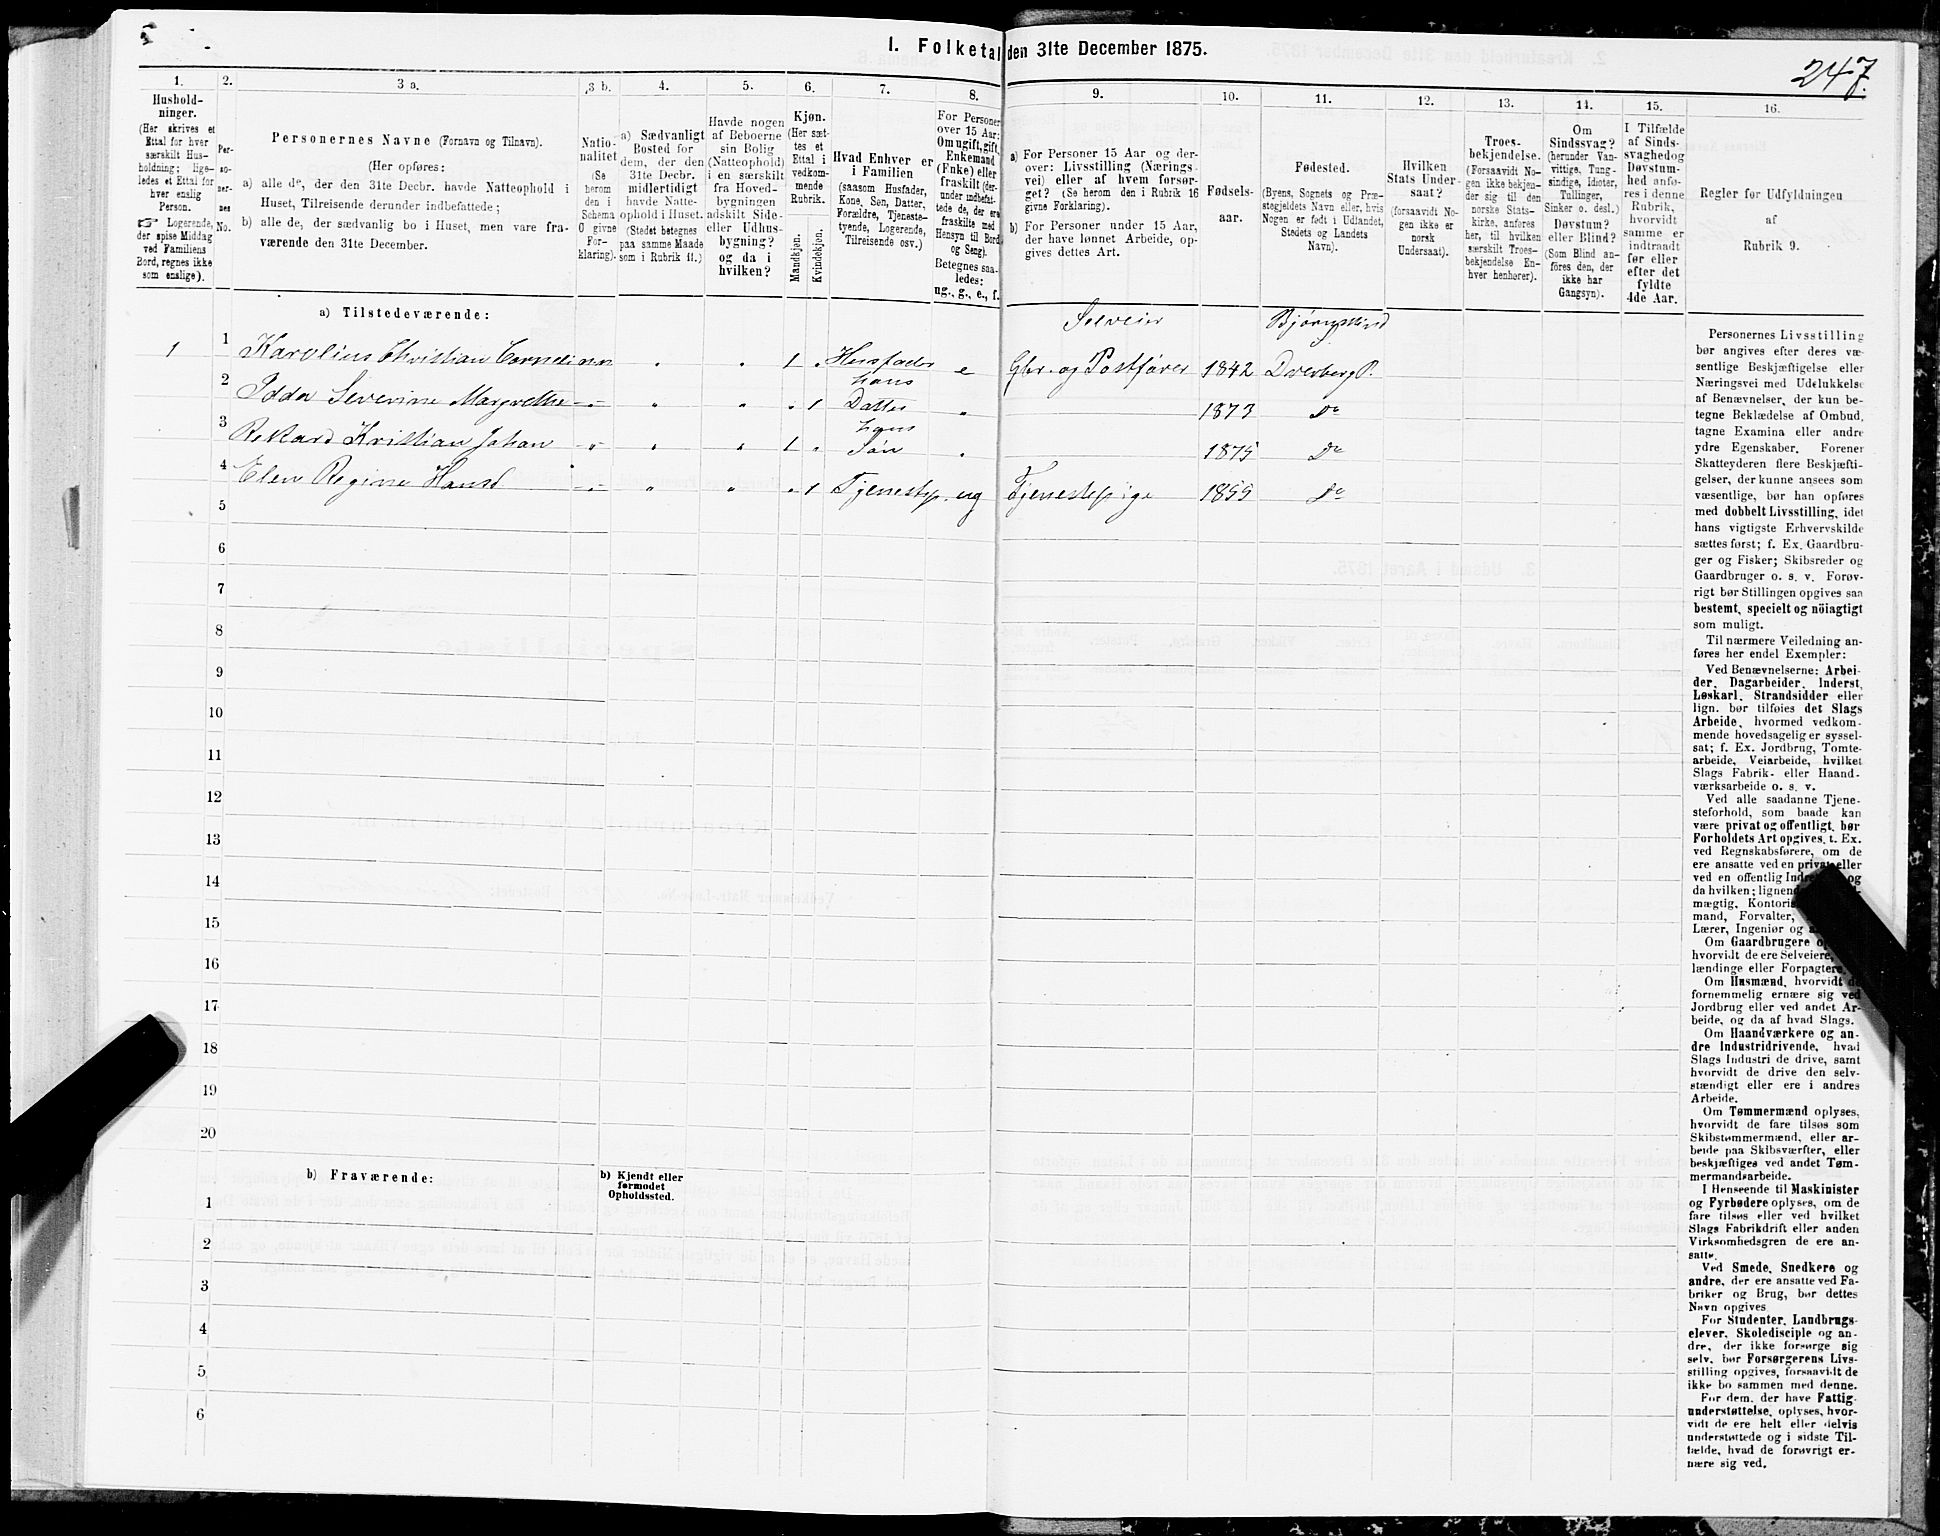 I. Folketal den 31te December 1875.
247.
1.
Hushold-
ninger.
(Her skrives et
Ettal for hver
særskilt Hus-
holdning; lige-
ledes et Ettal for
hver enslig
Person.
Logerende,
der spise Middag
ved Familiens
Bord, regnes ikke
som enslige).
2.
Per-
so-
ner-
nes
No.
3 a.
Personernes Navne (Fornavn og Tilnavn).
(Her opføres:
a) alle de, der den 31te Decbr. havde Natteophold i
Huset, Tilreisende derunder indbefattede;
b) alle de, der sædvanlig bo i Huset, men vare fra-
værende den 31te December.
3 b.
Natio-
nalitet
(Se
herom
den i
Schema
O givne
For-
klaring).
4.
a) Sædvanligt
Bosted for
dem, der den
31te Decbr.
midlertidigt
havde Natte-
ophold i Huset.
(Stedet betegnes
paa samme Maade
som i Rubrik 11.)
5.
Havde nogen
af Beboerne
sin Bolig
(Natteophold)
i en særskilt
fra Hoved-
bygningen
adskilt Side-
eller Udhus-
bygning?
og da i
hvilken?
6.
Kjøn.
(Her sæt-
tes et
Ettal i
vedkom-
mende
Rubrik.
Mandkjøn.
Kvindekjøn.
7.
Hvad Enhver er
i Familien
(saasom Husfader,
Kone, Søn, Datter,
Forældre, Tjeneste-
tyende, Logerende,
Tilreisende osv.)
8.
For Personer
over 15 Aar:
Om ugift, gift,
Enkemand
(Enke) eller
fraskilt (der-
under indbefat-
tede de, der ere
fraskilte med
Hensyn til Bord
og Seng).
Betegnes saa-
ledes:
ug., g., e., f.
9.
a) For Personer 15 Aar og der-
over: Livsstilling (Nærings-
vei) eller af hvem forsør-
get? (Se herom den i Rubrik 16
givne Forklaring).
b) For Personer under 15 Aar,
der have lønnet Arbeide, op-
gives dettes Art.
10.
Fødsels-
aar.
11.
Fødested.
(Byens, Sognets og Præ-
stegjeldets Navn eller, hvis
Nogen er født i Udlandet,
Stedets og Landets
Navn).
12.
Hvilken
Stats Under-
saat?
(forsaavidt No-
gen ikke er
norsk
Undersaat).
13.
Troes-
bekjendelse.
(Forsaavidt No-
gen ikke bekjen-
der sig til den
norske Stats-
kirke, anføres
her, til hvilken
særskilt Troes-
bekjendelse En-
hver henhører).
14.
Om
Sindssvag?
(herunder Van-
vittige, Tung-
sindige, Idioter,
Tullinger,
Sinker o. desl.)
Døvstum?
eller Blind?
(Som Blind an-
føres den, der
ikke har
Gangsyn).
15.
I Tilfælde
af Sinds-
svaghed og
Døvstum-
hed anfø-
res i denne
Rubrik,
hvorvidt
samme er
indtraadt
før eller
efter det
fyldte
4de Aar.
16.
Regler for Udfyldningen
af
Rubrik 9.
a) Tilstedeværende:
Selveier
1 1 Karolius Christian Cornelius 1 Husfader e Gbr. og Postfører 1842 Dverberg P.
hans
2 Idda Severine Margrethe 1 Datter 1873 Do
hans
3 Rikard Kristian Johan 1 Søn 1875 Do
4 Elen Regine Hansd 1 Tjenestep. ug Tjenestepige 1855 Do
5
6
7
8
9
10
11
12
13
14
15
16
17
18
19
20
b) Fraværende:
b) Kjendt eller
formodet
Opholdssted.
1
2
3
4
5
6
Personernes Livsstilling
bør angives efter deres væ-
sentlige Beskjæftigelse eller
Næringsvei med Udelukkelse
af Benævnelser, der kun be-
tegne Beklædelse af Ombud,
tagne Examina eller andre
ydre Egenskaber. Forener
Skatteyderen flere Beskjæfti-
gelser, der kunne ansees som
væsentlige, bør han opføres
med dobbelt Livsstilling, idet
hans vigtigste Erhvervskilde
sættes først; f. Ex. Gaardbru-
ger og Fisker; Skibsreder og
Gaardbruger o. s. v. Forøv-
rigt bør Stillingen opgives saa
bestemt, specielt og nöiagtigt
som muligt.
Til nærmere Veiledning an-
føres her endel Exempler:
Ved Benævnelserne: Arbei-
der, Dagarbeider, Inderst,
Løskarl, Strandsidder eller
lign. bør tilføies det Slags
Arbeide, hvormed vedkom-
mende hovedsagelig er syssel-
sat; f. Ex. Jordbrug, Tomte-
arbeide, Veiarbeide, hvilket
Slags Fabrik- eller Haand-
værksarbeide o. s. v.
Ved alle saadanne Tjene-
steforhold, som baade kan
være privat og offentligt, bør
Forholdets Art opgives, t. Ex.
ved Regnskabsførere, om de
ere ansatte ved en privat eller
ved en offentlig og
da hvilken;
mægtig,
mand, Forvalter,
Lærer, Ingeniør og
Om Gaardbrugere
hvorvidt de ere Selveiere,
lændinge eller Forpagtere.
Om Husmænd, hvorvidt de
fornemmelig ernære sig ved
Jordbrug eller ved andet Ar-
beide, og da af hvad Slags.
Om Haandværkere og an-
dre Industridrivende, hvad
Slags Industri de drive, samt
hvorvidt de drive den selv-
stændigt eller ere i andres
Arbeide.
Om Tømmermænd oplyses,
hvorvidt de fare tilsøs som
Skibstømmermænd, eller ar-
beide paa Skibsværfter, eller
beskjæftiges ved andet Tøm-
mermandsarbeide.
I Henseende til Maskinister
og Fyrbødere oplyses, om de
fare tilsøs eller ved hvilket
Slags Fabrikdrift eller anden
Virksomhedsgren de ere an-
satte.
Ved Smede, Snedkere og
andre, der ere ansatte ved Fa-
briker og Brug, bør dettes
Navn opgives
For Studenter, Landbrugs-
elever, Skoledisciple og an-
dre, der ikke forsørge sig
selv, bør Forsørgerens Livs-
stilling opgives, forsaavidt de
ikke bo sammen med denne.
For dem, der have Fattig-
understøttelse, oplyses, hvor-
vidt de ere helt eller delvis
understøttede og i sidste Til-
fælde, hvad de forøvrigt er-
nære sig ved.